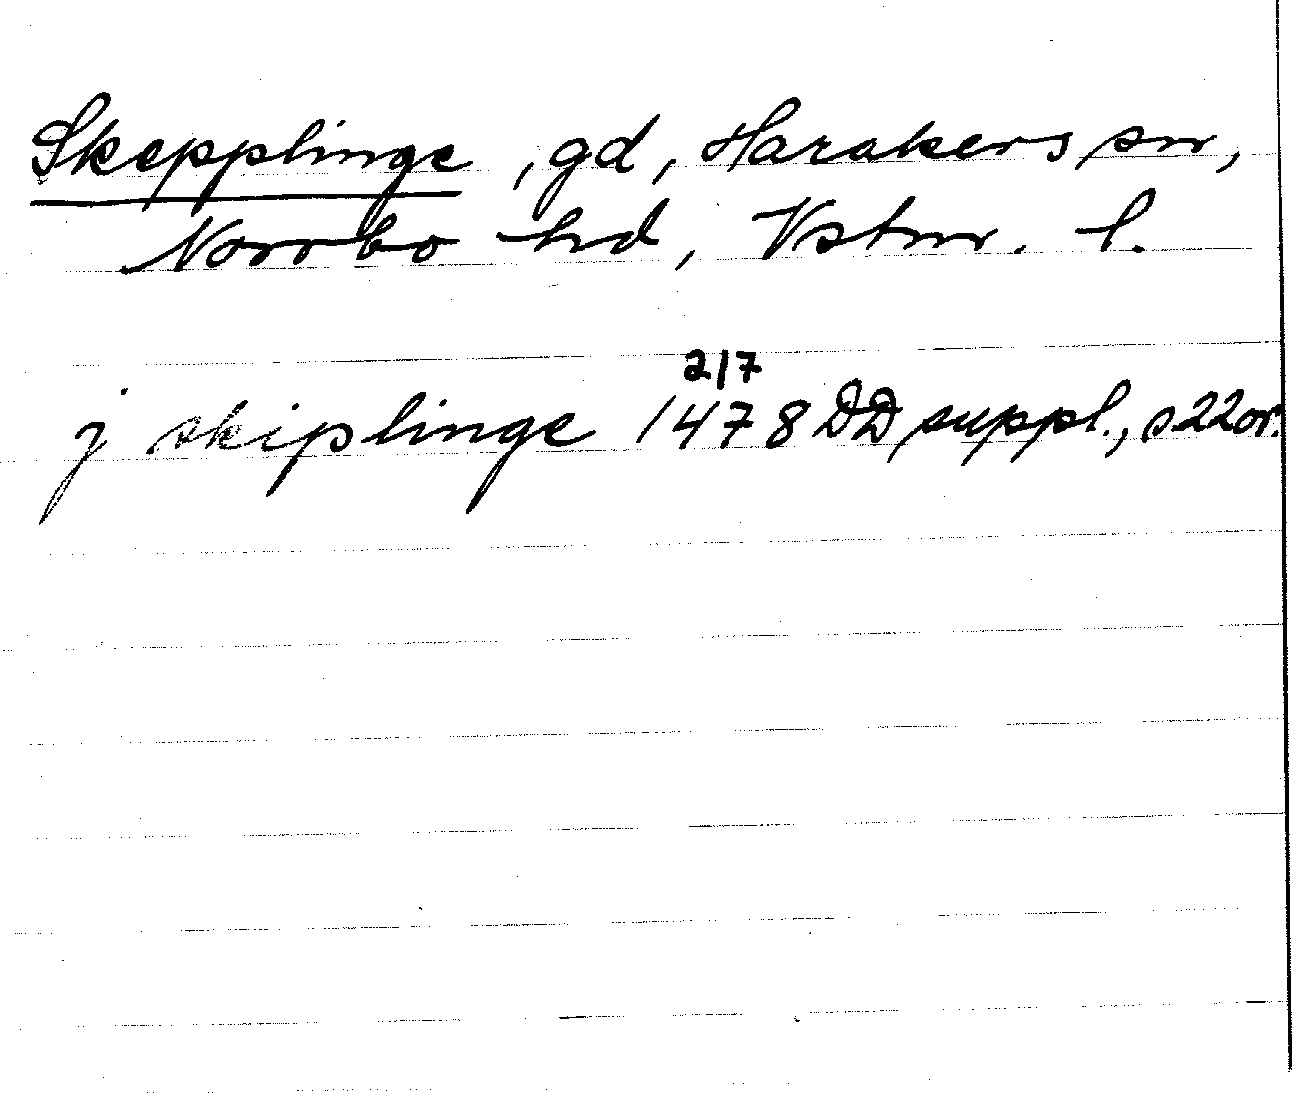 Skepplinge, gd, Harakers sn,
Norrbo hd, Vstm. l.
2/7
j skiplinge 1478 DD suppl., s 22 or.